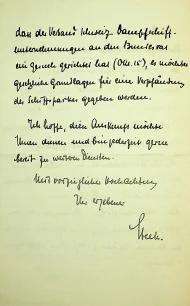 dass der Verband schweiz. Dampfschiff-
unternehmungen an den Bundesrat
ein Gesuch gerichtet hat (Okt. 15), es möchten
gesetzliche Grundlagen für eine Verpfändung
des Schiffsparkes gegeben werden.
Ich hoffe, diese Auskunft möchte
Ihnen dienen und bin jederzeit gern
bereit zu weitern Diensten.
Mit vorzüglicher Hochachtung
Ihr ergebener